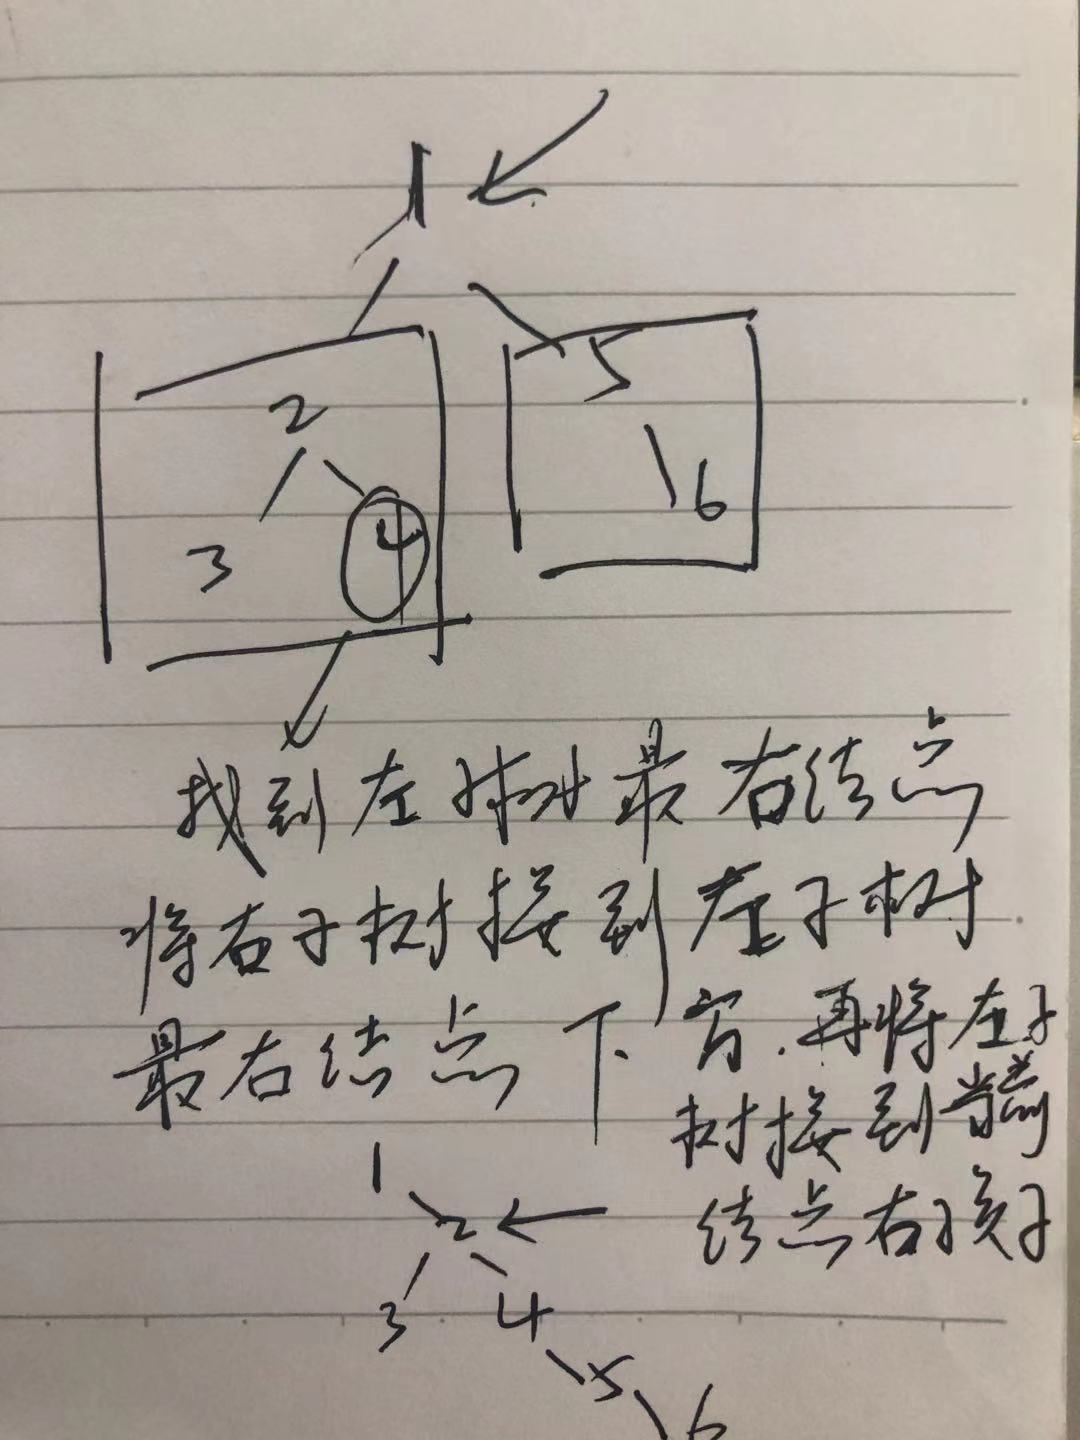 1
2 5
3 4 6
找到左子树最右结点
将右子树接到左子树
最右结点下方.再将左子
树接到当前
结点右孩子
1
2
3 4
5
6